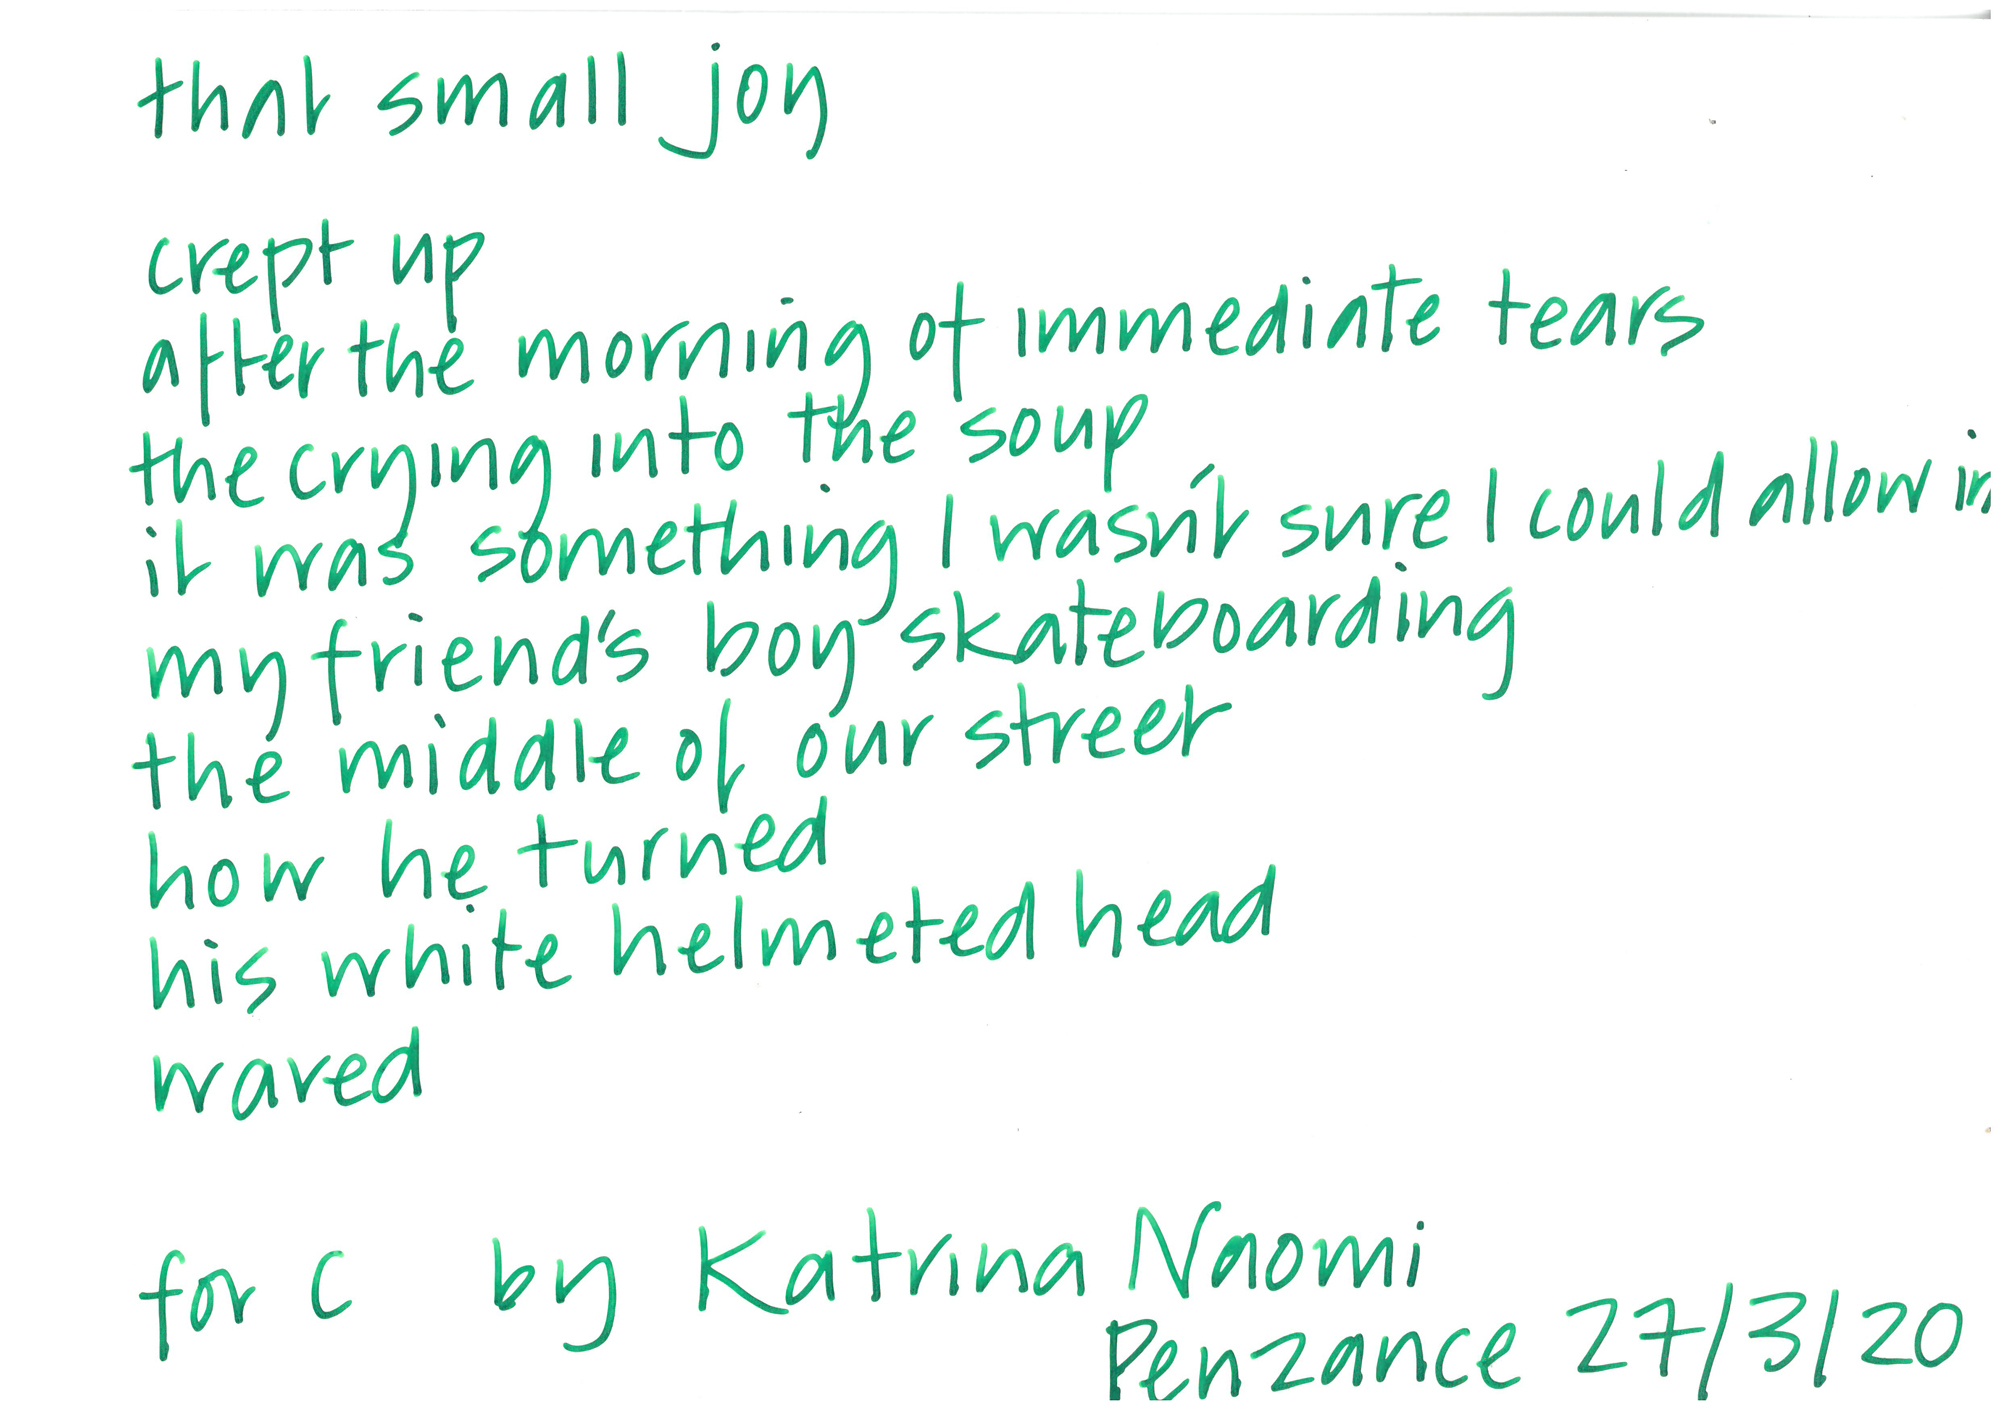 that small joy
crept up
after the morning of immediate tears
the crying into the soup
it was something I wasn't sure I could allow in
my friend's boy skateboarding
the middle of our street
how he turned
his white helmeted head
waved
for C by Katrina Naomi
Penzance 27/3/20